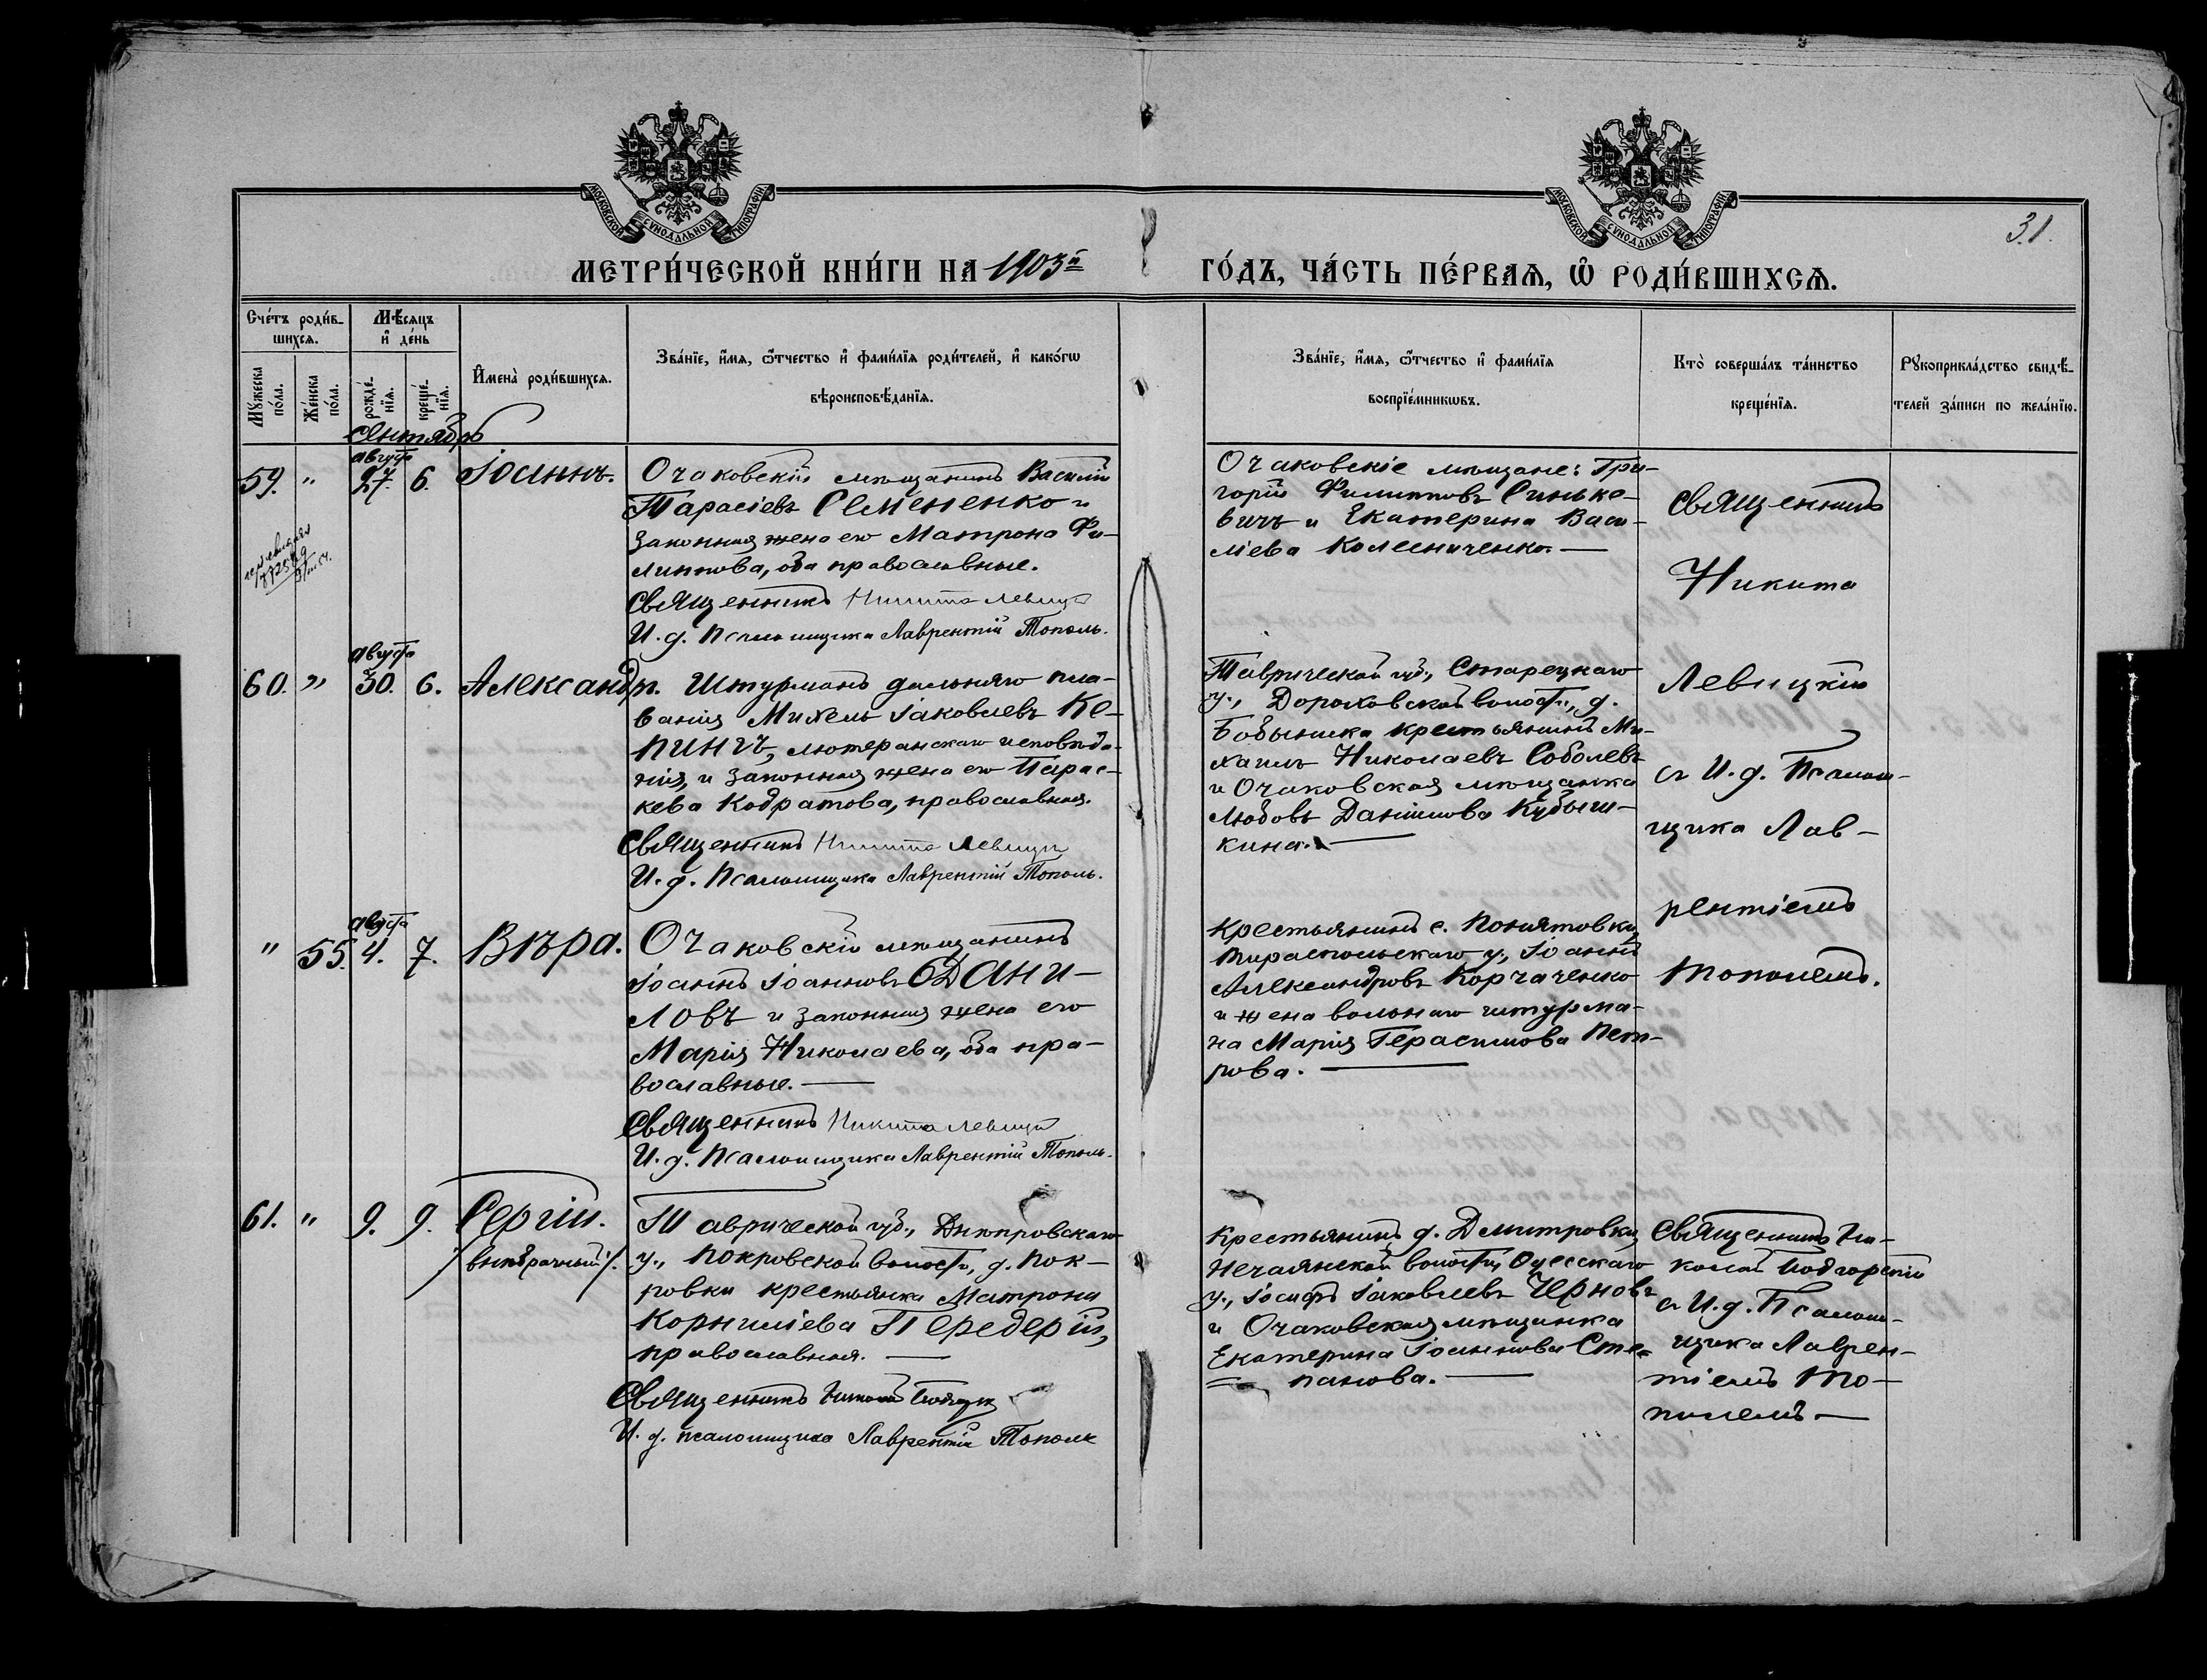 МОСКОВСКОЙ СѴНОДАЛЬНОЙ ТИПОГРАФІИ
МОСКОВСКОЙ СѴНОДАЛЬНОЙ ТИПОГРАФІИ
31.
МЕТРИ́ЧЕСКОЙ КНИ́ГИ НА 1903й
ГО́ДЪ, ЧА́СТЬ ПЕ́РВАѦ, Ѡ҆ РОДИ́ВШИХСѦ.
Сче́тъ роди́в-
шихсѧ.
Мѣ́сѧцъ
и҆ де́нь
Мꙋ́жеска
по́ла.
Же́нска
по́ла.
рожде́-
нїѧ.
креще́-
нїѧ.
И҆мена̀ роди́вшихсѧ.
Зва́нїе, и҆́мѧ, ѻ҆́тчество и҆ фами́лїѧ роди́телей, и҆ како́гѡ
вѣроисповѣ́данїѧ.
Зва́нїе, и҆́мѧ, ѻ҆́тчество и҆ фами́лїѧ
воспрїе́мникѡвъ.
Кто̀ соверша́лъ та́инство
креще́нїѧ.
Рꙋкоприкла́дство свидѣ́-
телей за́писи по жела́нїю.
Сентябрь
59. " август 27. 6. Іоаннъ.
Очаковскій мѣщанинъ Василій
Тарасіевъ Семененко и
законная жена его Матрона Фи-
липпова, оба православные.
Священникъ Никита Левицк
И. д. Псаломщика Лаврентій Тополь.
Очаковскіе мѣщане: Гри-
горій Филипповъ Синьке-
вичъ и Екатерина Васи-
ліева Колесниченко. —
Священникъ
Никита
Левицкій
съ И. д. Псалом-
щика Лав-
рентіемъ
Тополемъ.
60. " август 30. 6. Александръ.
Штурманъ дальняго пла-
ванія Михель Іаковлевъ Ке-
пингъ, лютеранскаго исповѣда-
нія, и законная жена его Парас-
кева Кодратова, православная.
Священникъ Никита Левицк
И. д. Псаломщика Лаврентій Тополь.
Таврической губ.,
у., волост., д.
крестьянинъ Ми-
хаилъ Николаевъ Соболевъ
и Очаковская мѣщанка
Любовь Даніилова Кубыш-
кина. —
" 55. август 4. 7. Вѣра.
Очаковскій мѣщанинъ
Іоаннъ Іоанновъ ДАНИ-
ЛОВЪ и законная жена его
Марія Николаева, оба пра-
вославные. —
Священникъ Никита Левицк
И. д. Псаломщика Лаврентій Тополь.
Крестьянинъ с. Понятовки,
Тираспольскаго у., Іоаннъ
Александровъ Корчаченко
и жена вольнаго штурма-
на Марія Герасимова Пет-
рова. —
61. " 9. 9. Сергій.
/внѣбрачный/.
Таврической губ., Днѣпровскаго
у., Покровской волости, д. Пок-
ровки крестьянка Матрона
Корниліева Передерій,
православная. —
Священникъ Николай Подгорск
И. д. псаломщика Лаврентій Тополь
Крестьянинъ д. Дмитровки,
Нечаянской волости, Одесскаго
у., Іосифъ Іаковлевъ Черновъ
и Очаковская мѣщанка
Екатерина Іоаннова Сте-
панова. —
Священникъ Ни-
колай Подгорскій
съ И. д. Псалом-
щика Лаврен-
тіемъ То-
полемъ —